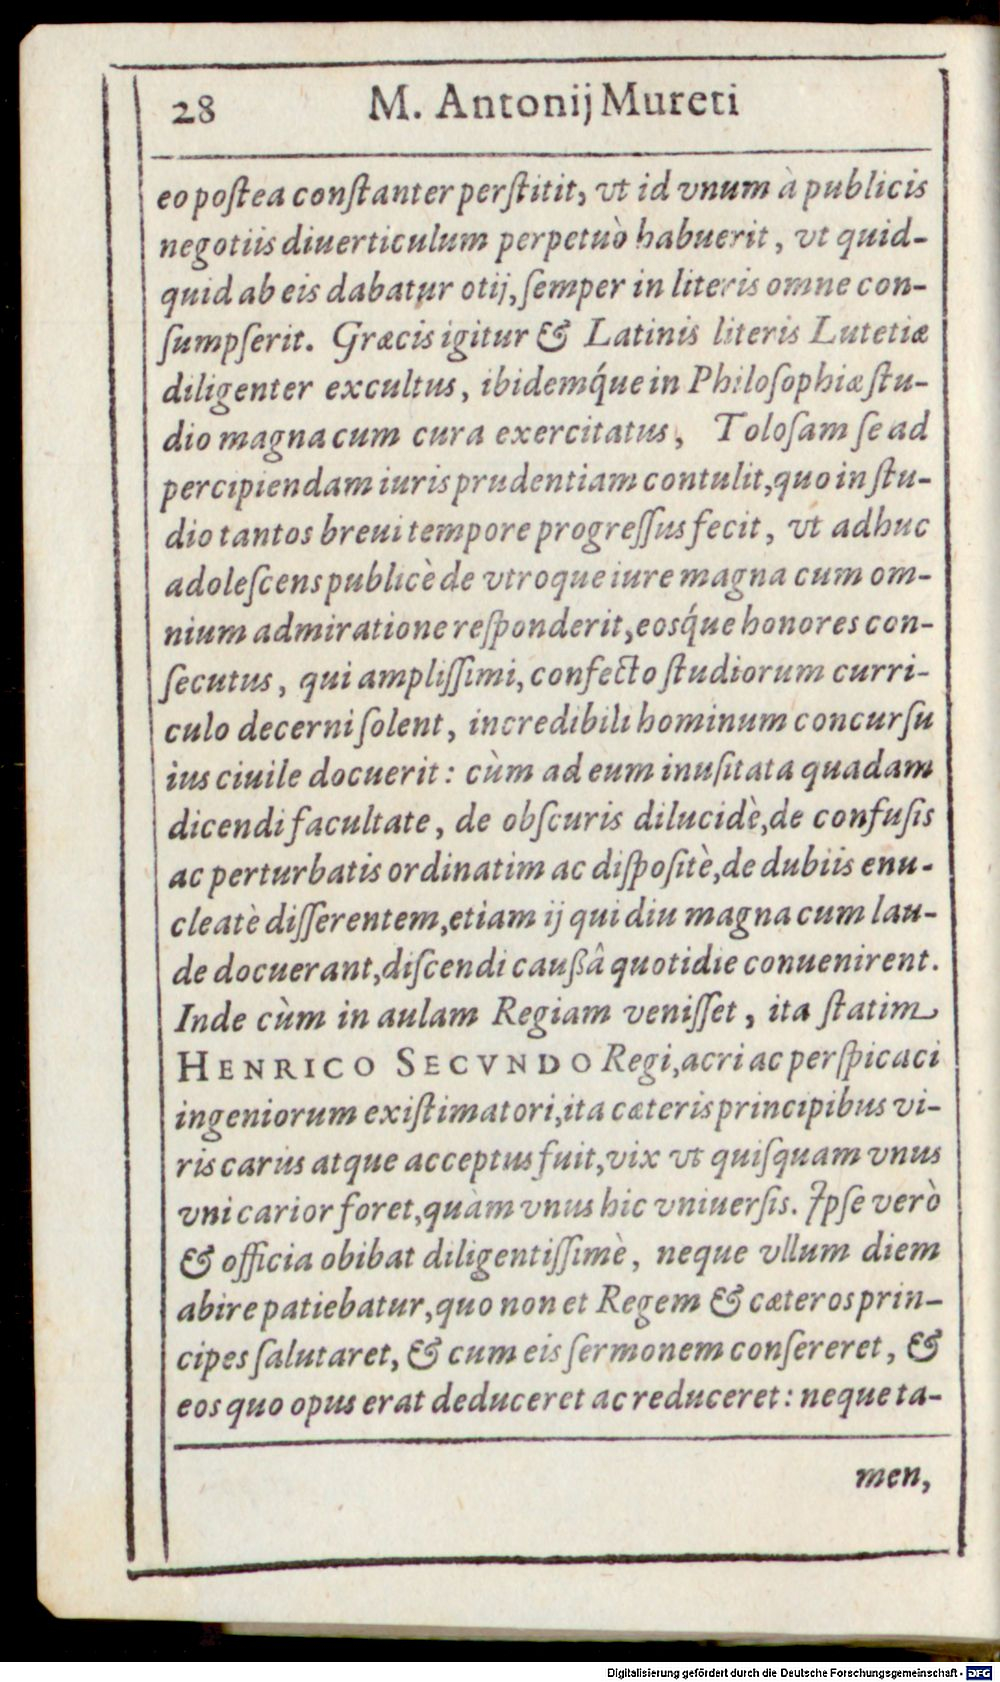 28 M. Antonij Mureti
eo poſtea conſtanter perſtitit, vt id vnum à publicis
negotiis diuerticulum perpetuò habuerit, vt quid-
quid ab eis dabatur otij, ſemper in literis omne con-
ſumpſerit. Græcis igitur & Latinis literis Lutetiæ
diligenter excultus, ibidemq́ue in Philoſophiæ ſtu-
dio magna cum cura exercitatus, Toloſam ſe ad
percipiendam iuris prudentiam contulit, quo in ſtu-
dio tantos breui tempore progreſſus fecit, vt adhuc
adoleſcens publicè de vtroque iure magna cum om-
nium admiratione reſponderit, eosq́ue honores con-
ſecutus, qui ampliſſimi, confecto ſtudiorum curri-
culo decerni ſolent, incredibili hominum concurſu
ius ciuile docuerit: cùm ad eum inuſitata quadam
dicendi facultate, de obſcuris dilucidè, de confuſis
ac perturbatis ordinatim ac diſpoſitè, de dubiis enu-
cleatè diſſerentem, etiam ij qui diu magna cum lau-
de docuerant, diſcendi caußâ quotidie conuenirent.
Inde cùm in aulam Regiam veniſſet, ita ſtatim
HENRICO SECVNDO Regi, acri ac perſpicaci
ingeniorum exiſtimatori, ita cæteris principibus vi-
ris carus atque acceptus fuit, vix vt quiſquam vnus
vni carior foret, quàm vnus hic vniuerſis. Ipſe verò
& officia obibat diligentiſſimè, neque vllum diem
abire patiebatur, quo non et Regem & cæteros prin-
cipes ſalutaret, & cum eis ſermonem conſereret, &
eos quo opus erat deduceret ac reduceret: neque ta-
men,
Digitalisierung gefördert durch die Deutsche Forschungsgemeinschaft - DFG